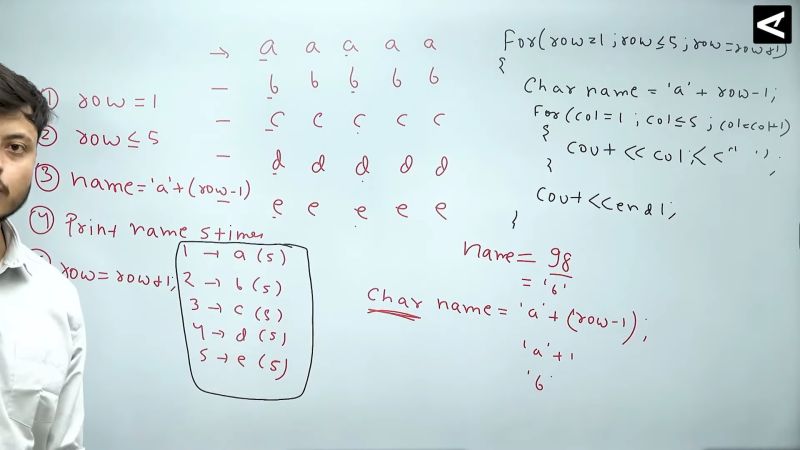 → a a a a a
- b b b b b
- c c c c c
- d d d d d
e e e e e
① row = 1
② row ≤ 5
③ name = 'a' + (row-1)
④ Print name 5 times
row = row+1;
1 → a (5)
2 → b (5)
3 → c (5)
4 → d (5)
5 → e (5)
For(row=1 ; row ≤ 5 ; row=row+1)
{
Char name = 'a' + row-1;
For(col=1 ; col ≤ 5 ; col=col+1)
{
cout << col << " " ;
}
cout << endl;
}
name = 98
= 'b'
Char name = 'a' + (row-1);
'a' + 1
'b'